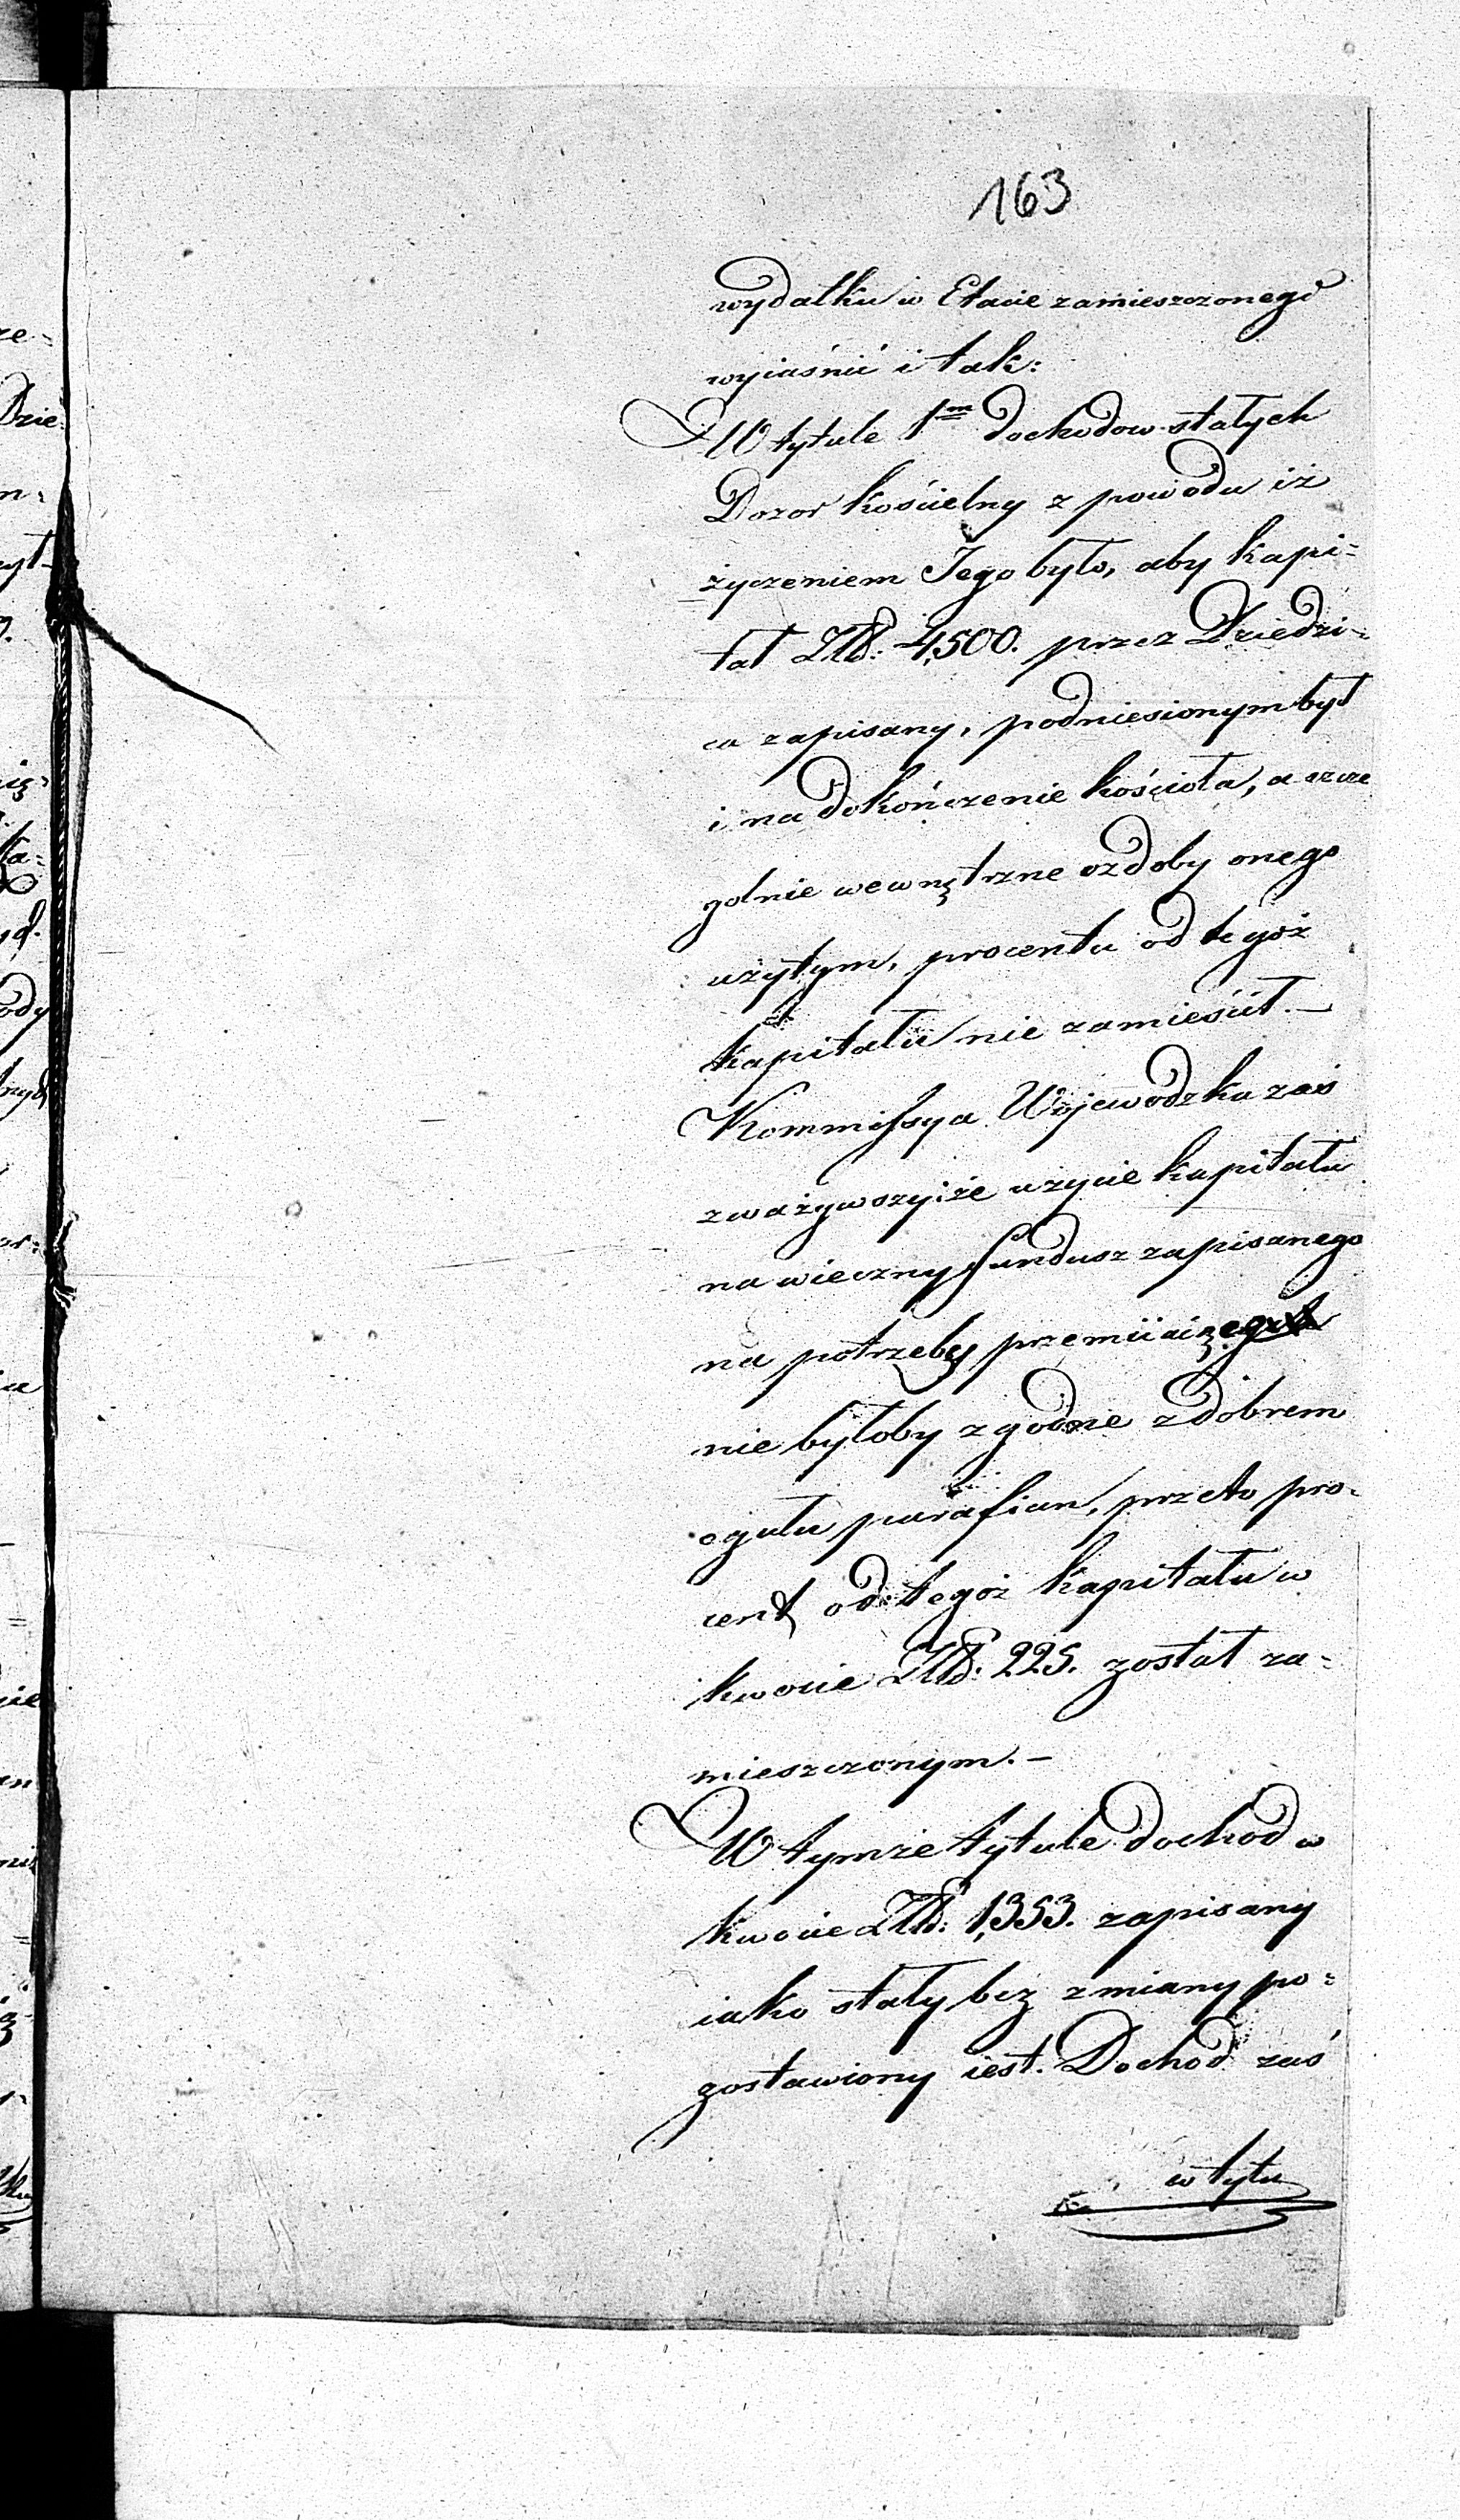 163
wydatku w Etacie zamieszczonego
wyiaśnić i tak:
W tytule 1m dochodow stałych
Dozor kościelny z powodu iż
życzeniem Jego było, aby kapi=
tał Złtt: 4,500. przez Dziedzi=
ca zapisany, podniesionym był
i na dokończenie kościoła, a szcze
golnie wewnętrzne ozdoby onego
użytym, procentu od tegoż
kapitału nie zamieścił. —
Kommissya Wojewodzka zaś
zważywszy że użycie kapitału
na wieczny fundusz zapisanego
na potrzeby przemiiaiące
nie byłoby zgodne z dobrem
ogułu parafian, przeto pro=
cent od tegoż kapitału w
kwocie Złtt: 225. został za=
mieszczonym. —
W tymże tytule dochod w
kwocie Złtt: 1,353. zapisany
iako stały bez zmiany po=
zostawiony iest. Dochod zaś
w tytu